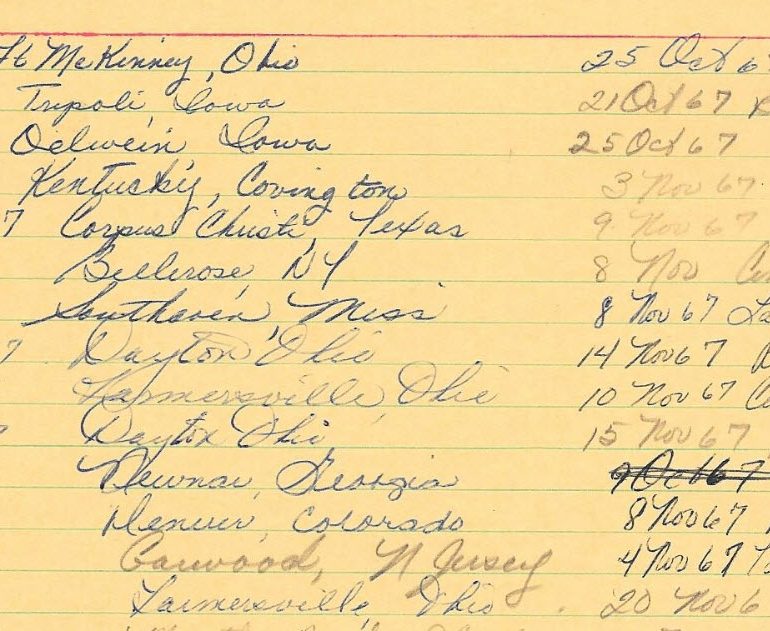 Ft McKinney, Ohio 25 Oct 6
Tripoli, Iowa 21 Oct 67
Oelwein, Iowa 25 Oct 67
Kentucky, Covington 3 Nov 67
7 Corpus Christi, Texas 9 Nov 67
Bellerose, NY 8 Nov
Southaven, Miss 8 Nov 67 La
7 Dayton Ohio 14 Nov 67
Farmersville, Ohio 10 Nov 67
Dayton Ohio 15 Nov 67
Newnan, Georgia 9 Oct 67
Denver, Colorado 8 Nov 67
Garwood, N Jersey 4 Nov 67
Farmersville, Ohio 20 Nov 6